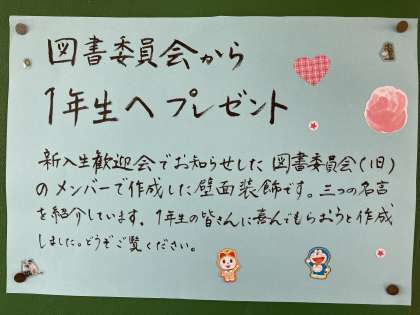 図書委員会から
1年生へプレゼント
新入生歓迎会でお知らせした図書委員会(旧)
のメンバーで作成した壁面装飾です。三つの名言
を紹介しています。1年生の皆さんに喜んでもらおうと作成
しました。どうぞご覧ください。